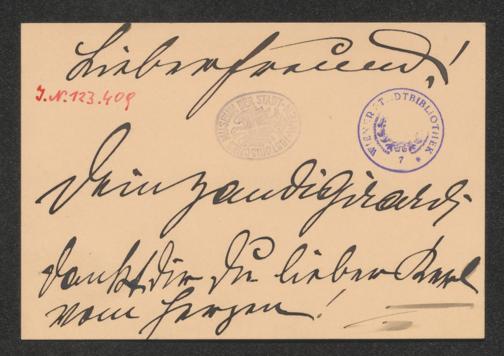 Lieber Freund!
J.N. 123.409
WIENER STADTBIBLIOTHEK
7
Dein Xandi Girardi
dankt dir Du lieber Kerl
vom Herzen!